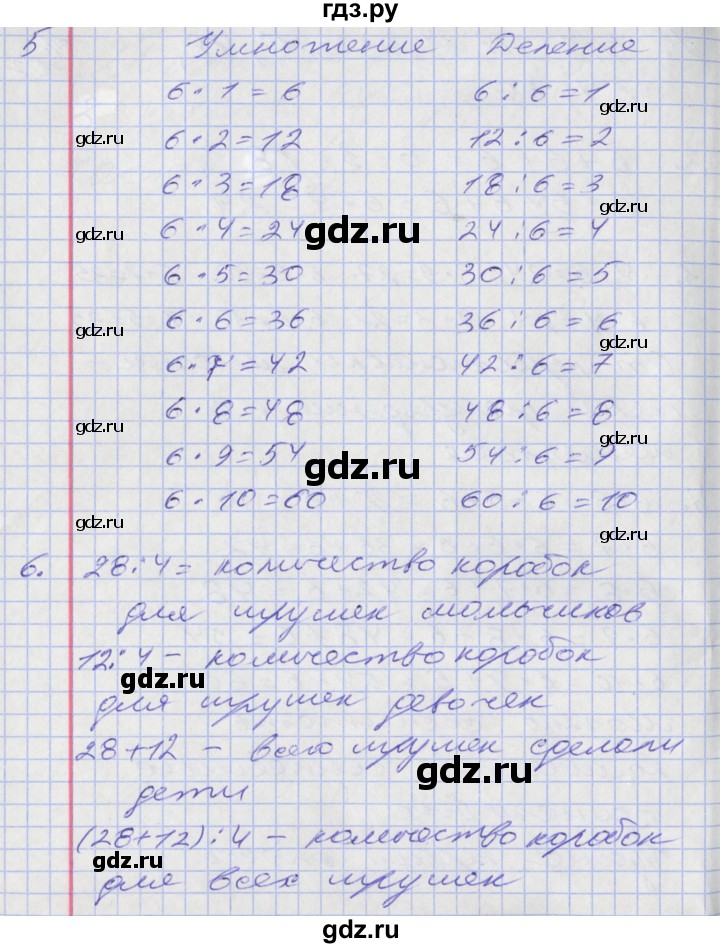 гдз.ру
5 Умножение Деление
6 · 1 = 6 6 : 6 = 1
gdz.ru
gdz.ru 6 · 2 = 12 12 : 6 = 2
6 · 3 = 18 18 : 6 = 3
gdz.ru
gdz.ru 6 · 4 = 24 gdz.ru 24 : 6 = 4
6 · 5 = 30 30 : 6 = 5
gdz.ru 6 · 6 = 36 36 : 6 = 6
gdz.ru
6 · 7 = 42 42 : 6 = 7
gdz.ru 6 · 8 = 48 48 : 6 = 8
gdz.ru
6 · 9 = 54 gdz.ru 54 : 6 = 9
gdz.ru 6 · 10 = 60 60 : 6 = 10
gdz.ru
6. 28 : 4 = количество коробок
для игрушек мальчиков
12 : 4 – количество коробок
gdz.ru
для игрушек девочек
28 + 12 – всего игрушек сделали
gdz.ru
дети
(28 + 12) : 4 – количество коробок
gdz.ru
для всех игрушек
gdz.ru
gdz.ru